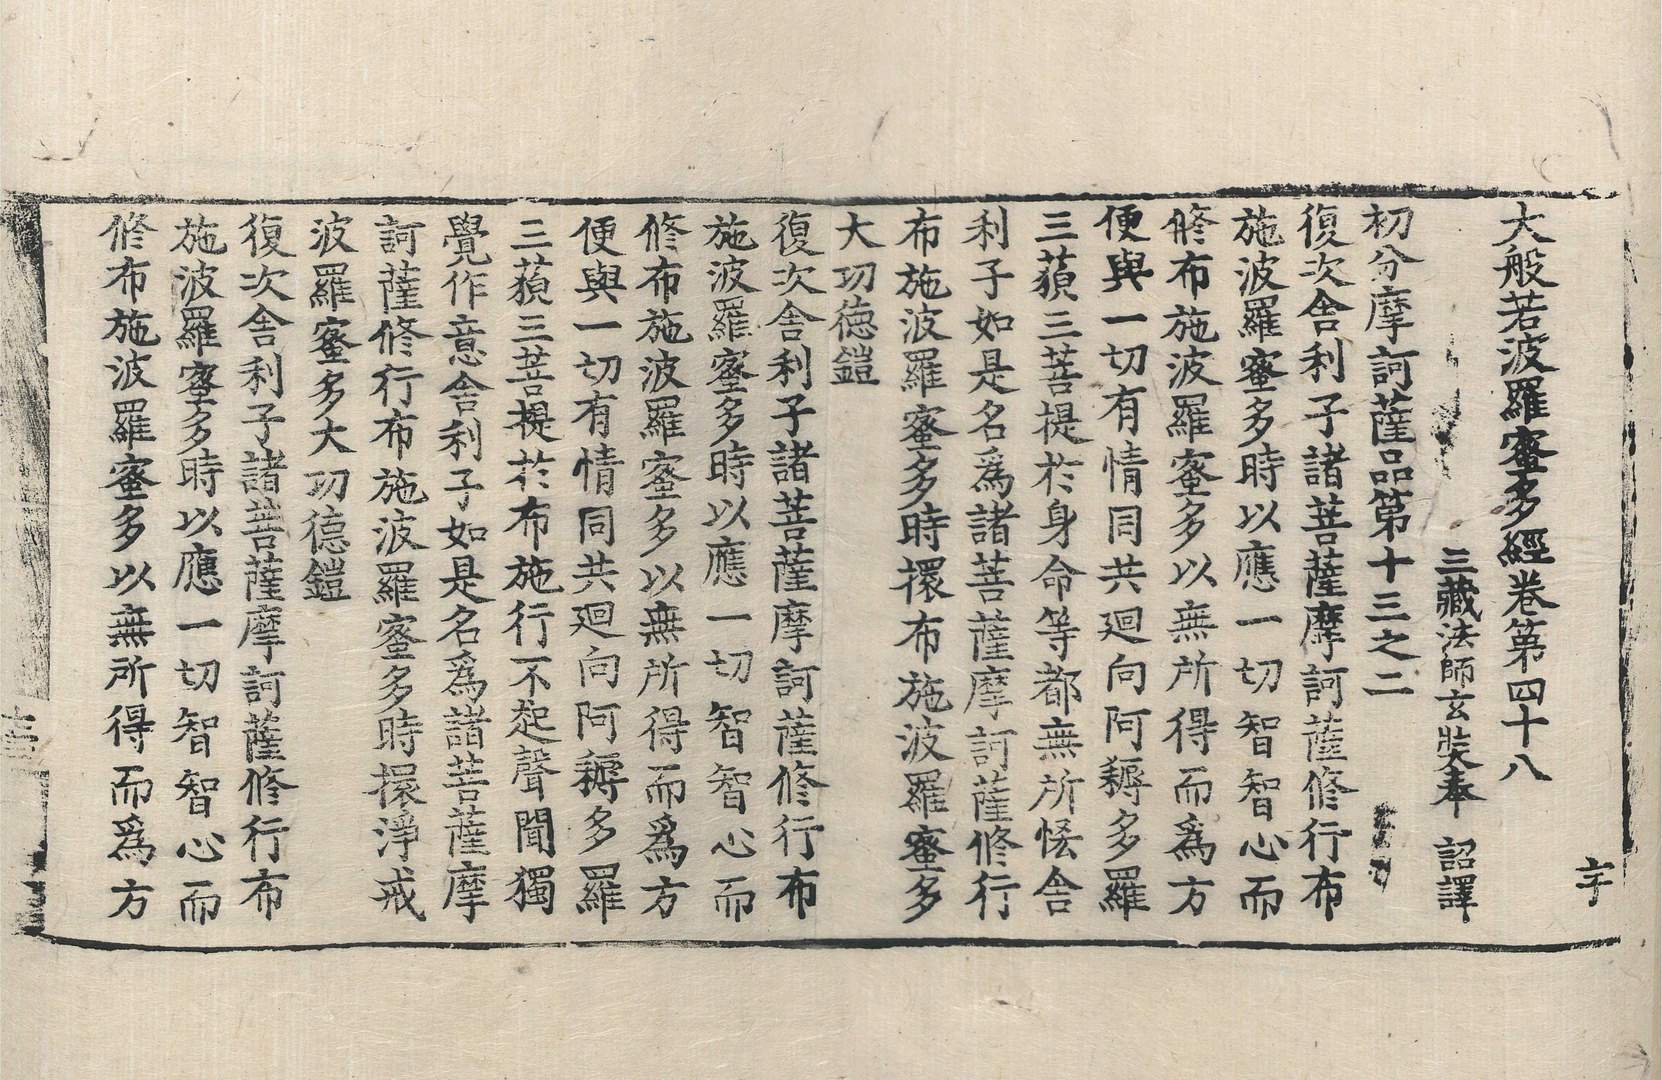 大般若波羅蜜多經卷第四十八
宇
三藏法師玄奘奉 詔譯
初分摩訶薩品第十三之二
復次舍利子諸菩薩摩訶薩修行布
施波羅蜜多時以應一切智智心而
修布施波羅蜜多以無所得而爲方
便與一切有情同共迴向阿耨多羅
三藐三菩提於身命等都無所悋舍
利子如是名爲諸菩薩摩訶薩修行
布施波羅蜜多時擐布施波羅蜜多
大功德鎧
復次舍利子諸菩薩摩訶薩修行布
施波羅蜜多時以應一切智智心而
修布施波羅蜜多以無所得而爲方
便與一切有情同共迴向阿耨多羅
三藐三菩提於布施行不起聲聞獨
覺作意舍利子如是名爲諸菩薩摩
訶薩修行布施波羅蜜多時擐淨戒
波羅蜜多大功德鎧
復次舍利子諸菩薩摩訶薩修行布
施波羅蜜多時以應一切智智心而
修布施波羅蜜多以無所得而爲方